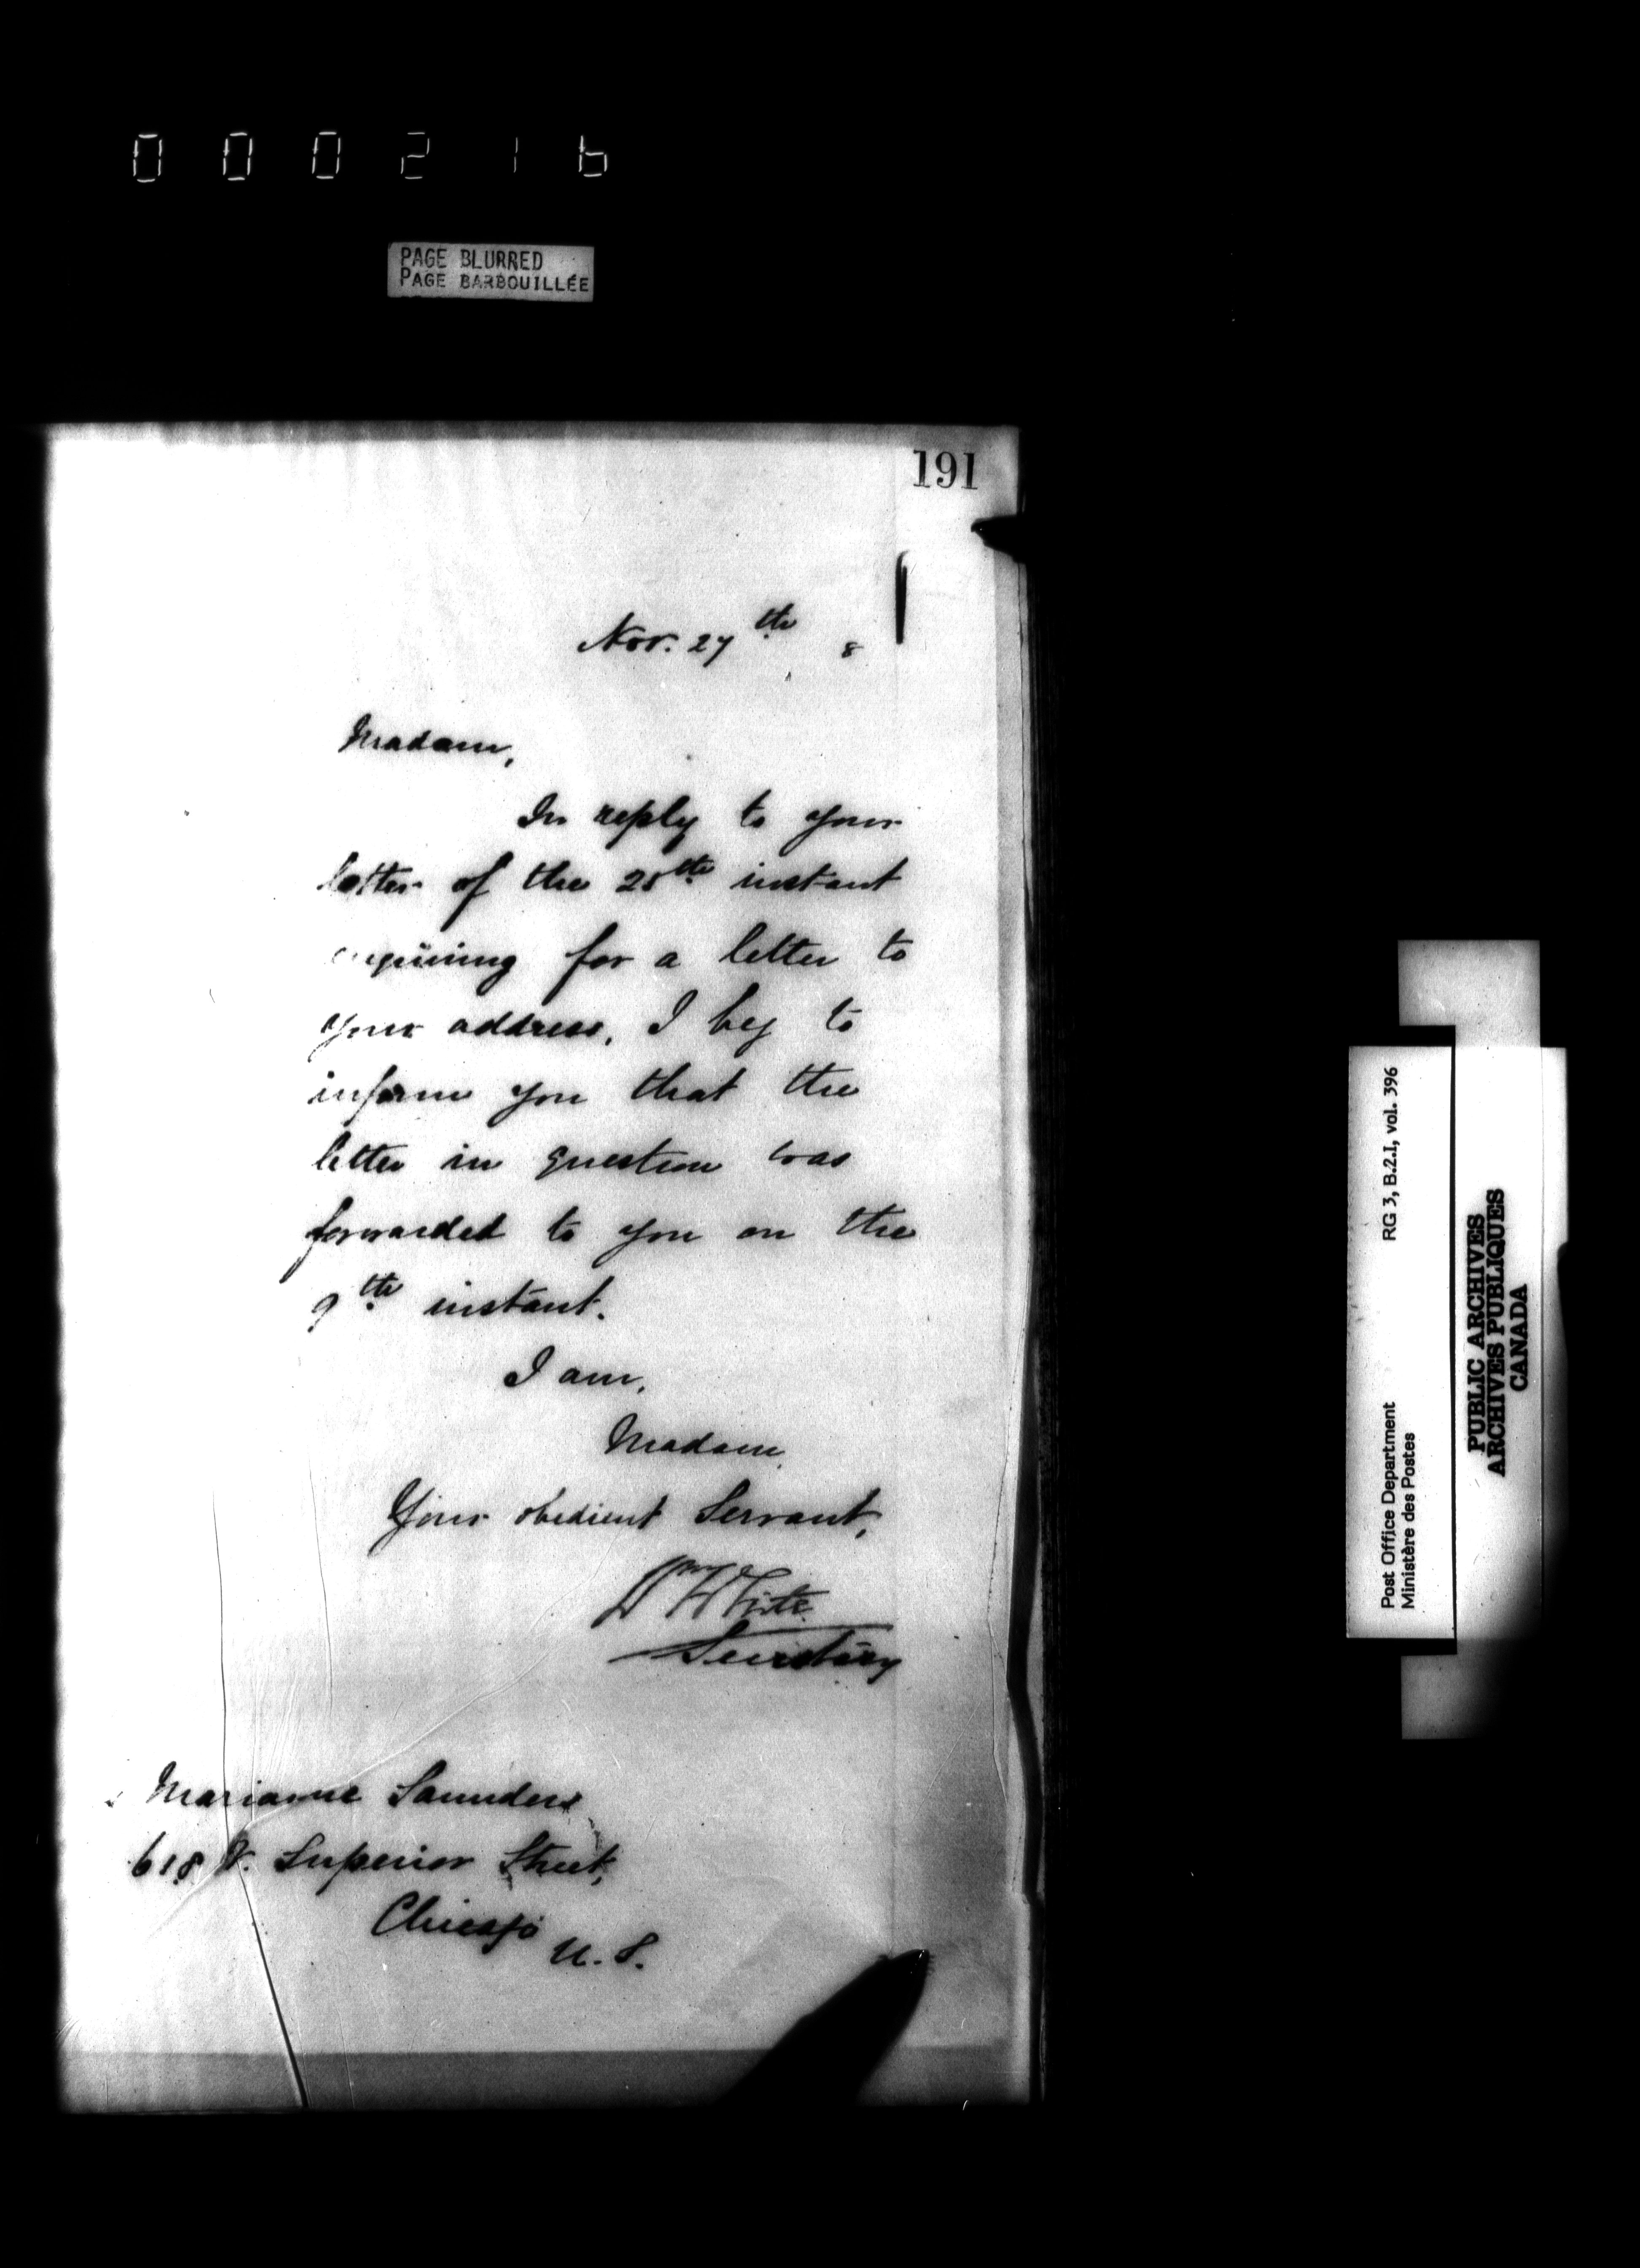 000216
PAGE BLURRED
PAGE BARBOUILLÉE
191
Nov. 27th 8
Madam,
In reply to your
letter of the 25th instant
enquiring for a letter to
your address, I beg to
inform you that the
letter in question was
forwarded to you on the
9th instant.
I am,
Madam,
Your obedient Servant,
Wm White
Secretary
Marianne Saunders
618 W. Superior Street,
Chicago
U.S.
Post Office Department RG 3, B.2.I, vol. 396
Ministère des Postes
PUBLIC ARCHIVES
ARCHIVES PUBLIQUES
CANADA